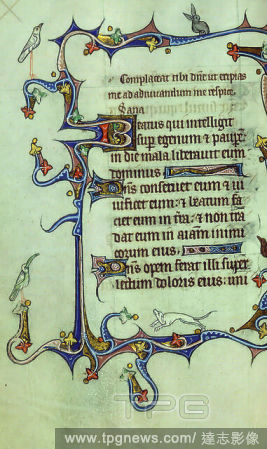 Complaceat tibi dn̄e ut eripias
me ad adiuvandum me respice.
Beatus qui intelligit
sup egenum & paupem
in die mala liberavit eum
dominus
Dn̄s conservet eum & vi
vificet eum: & beatum fa
ciet eum in tr̄a: & non tra
dat eum in aīam inimi
corum eius.
Dn̄s opem ferat illi super
lectum doloris eius: uni
TPG
www.tpgnews.com / 達志影像